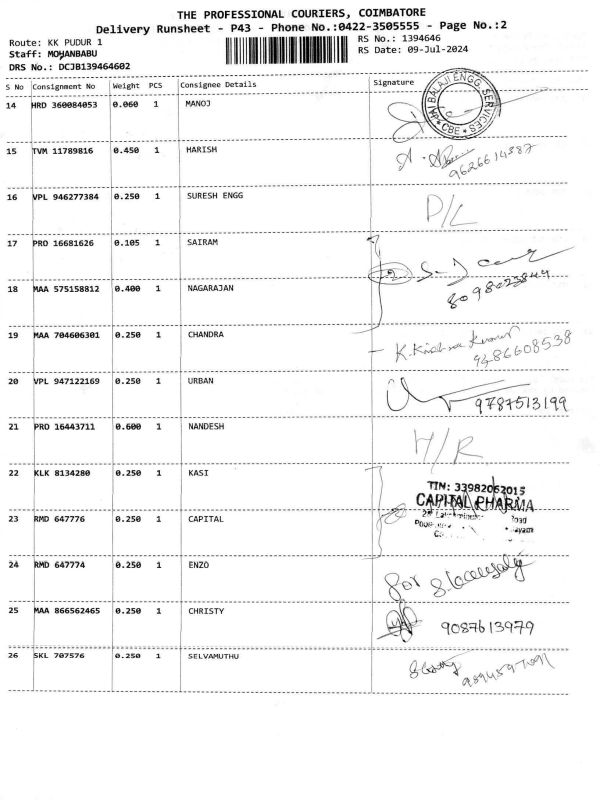 THE PROFESSIONAL COURIERS, COIMBATORE
Delivery Runsheet - P43 - Phone No.:0422-3505555 - Page No.:2
Route: KK PUDUR 1
RS No.: 1394646
Staff: MOHANBABU
RS Date: 09-Jul-2024
DRS No.: DCJB139464602
S No Consignment No Weight PCS Consignee Details Signature
14 HRD 360084053 0.060 1 MANOJ
BALAJI ENGG. SERVICES
* CBE *
15 TVM 11789816 0.450 1 HARISH
9626614387
16 VPL 946277384 0.250 1 SURESH ENGG D/L
17 PRO 16681626 0.105 1 SAIRAM
18 MAA 575158812 0.400 1 NAGARAJAN
8098023844
19 MAA 704606301 0.250 1 CHANDRA
K. Krishna Kumar
9486608538
20 VPL 947122169 0.250 1 URBAN
9787513199
21 PRO 16443711 0.600 1 NANDESH H/R
22 KLK 8134280 0.250 1 KASI
TIN: 33982062015
CAPITAL PHARMA
23 RMD 647776 0.250 1 CAPITAL
Road
24 RMD 647774 0.250 1 ENZO
for
25 MAA 866562465 0.250 1 CHRISTY
9087613979
26 SKL 707576 0.250 1 SELVAMUTHU